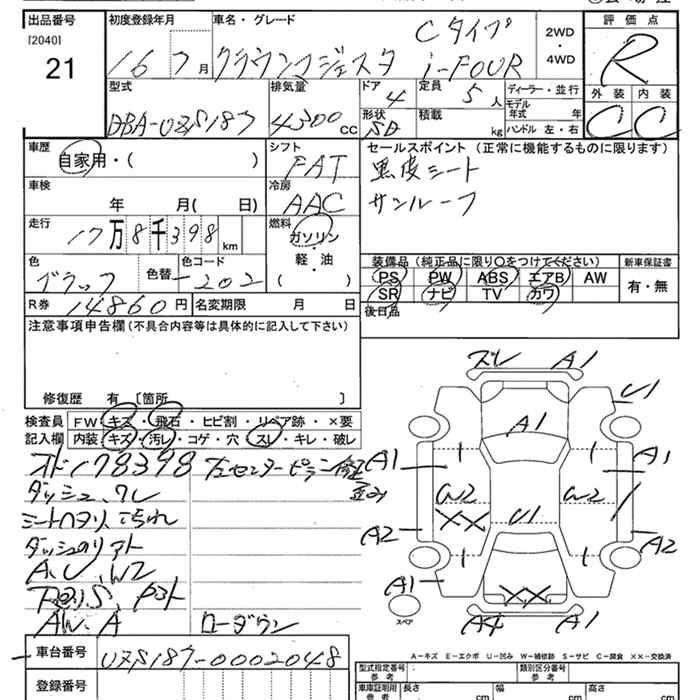 出品番号
[2040]
21
初度登録年月
16 7月
車名・グレード
クラウンマジェスタ
Cタイプ
i-FOUR
2WD
・
4WD
評価点
R
外装 内装
C C
型式
DBA-UZS187
排気量
4300CC
ドア
4
形状
SD
定員
5人
積載
kg
ディーラー・並行
モデル
年式 年
ハンドル 左・右
車歴
自家用・( )
シフト
FAT
車検
年 月( 日)
冷房
AAC
走行
17万8千398km
燃料
ガソリン
・
軽・油
( )
色
ブラック
色替
色コード
202
R券 14860円
名変期限 月 日
セールスポイント(正常に機能するものに限ります)
黒皮シート
サンルーフ
装備品(純正品に限り○をつけてください)
PS PW ABS エアB AW
SR ナビ TV カワ
新車保証書
有・無
後日品
注意事項申告欄(不具合内容等は具体的に記入して下さい)
修復歴 有〔箇所 〕
検査員
記入欄
FW キズ・飛石・ヒビ割・リペア跡・×要
内装 キズ・汚レ・コゲ・穴・スレ・キレ・破レ
178398
左センターピラー修正
歪み
ダッシュ
シート
A.U.W2
AW.A
ローダウン
車台番号
UZS187-0002048
登録番号
ズレ A1
U1
A1
A1 A1
W2 W2
XX
U1
A2 A2
A1
XX
A4 A1
スペア
A-キズ E-エクボ U-凹み W-補修跡 S-サビ C-腐食 XX-交換済
型式指定番号
参考
類別区分番号
参考
車庫証明用
参考
長さ cm
幅 cm
高さ cm